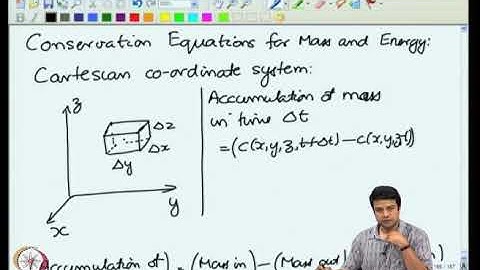 Conservation Equations for Mass and Energy:
Cartesian co-ordinate system:
z
Δz
Δx
Δy
y
x
Accumulation of mass
in time Δt
=(C(x,y,z,t+Δt) - C(x,y,z,t))
Accumulation of) = (Mass in) - (Mass out)